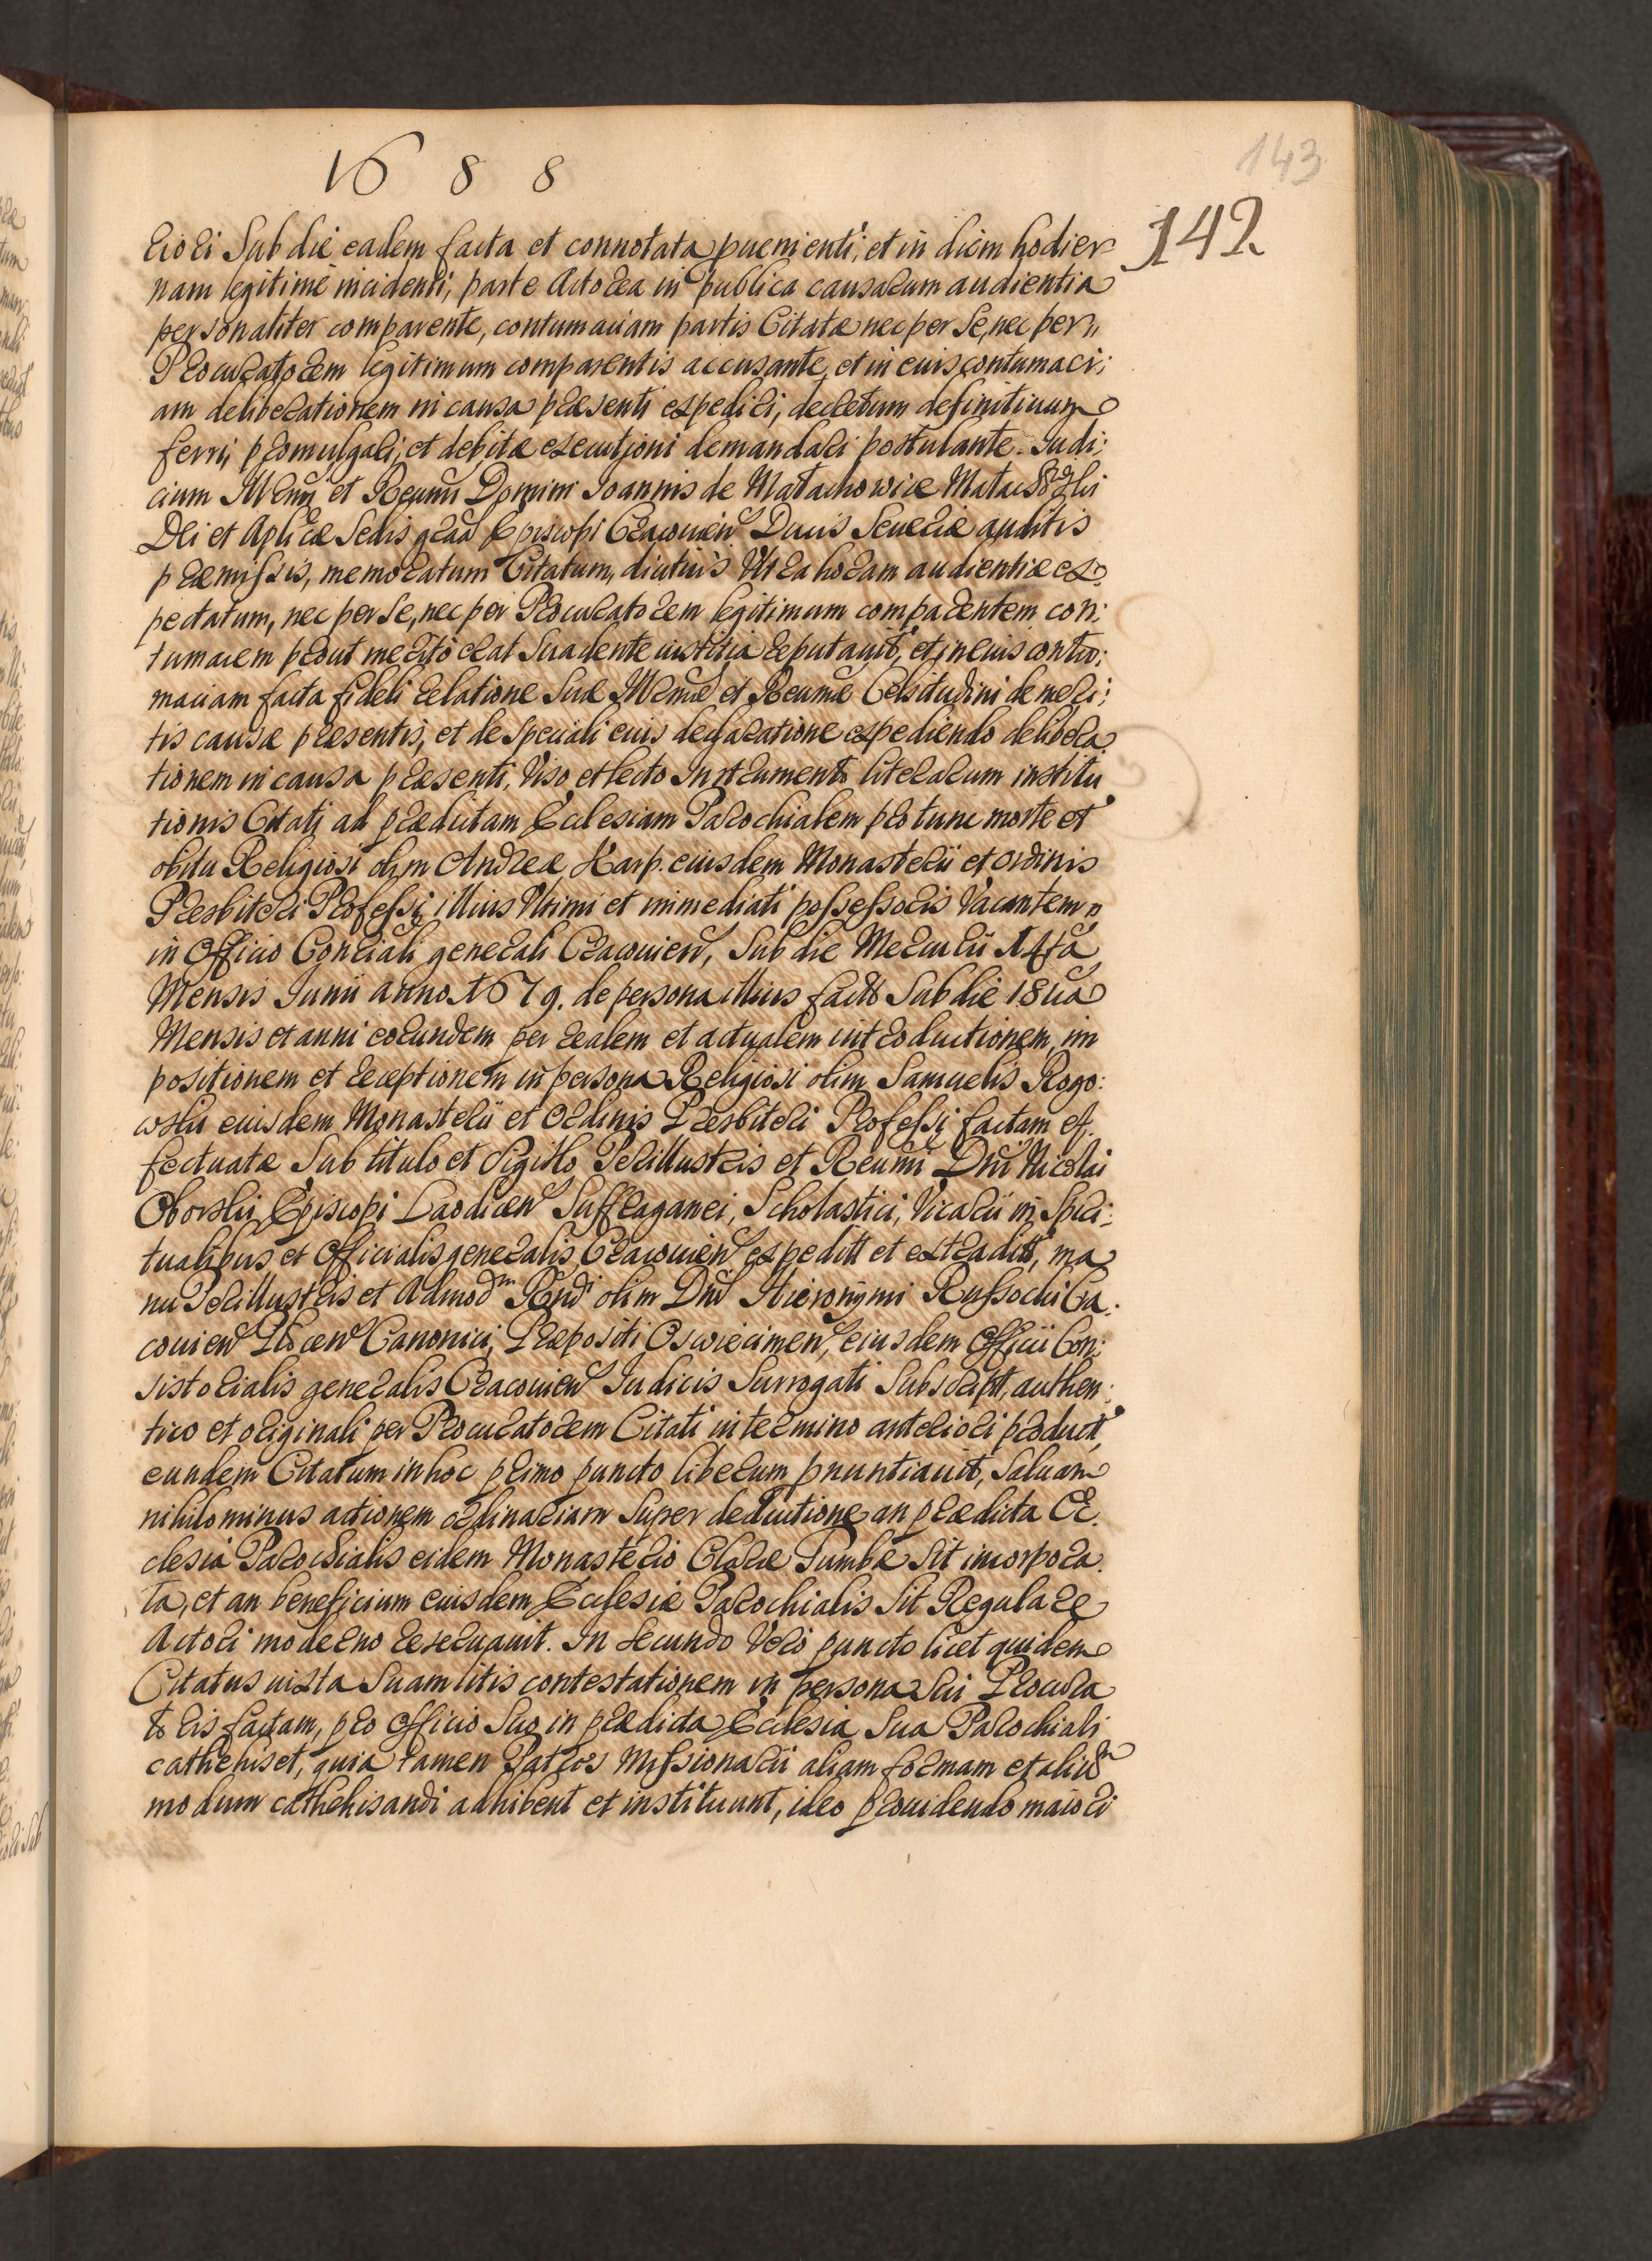 1688
143
142
riori Sub die eadem facta et connotata puenienti; et in diem hodier
nam legitime incidenti; parte Actorea in publica causarum audientia
personaliter comparente, contumaciam partis Citatæ nec per Se, nec per
Procuratorem legitimum comparentis accusante, et in euis contumaci;
am deliberationem in causa præsenti expediri, decretum definitiuum
ferri, promulgari, et debitæ executioni demandari postulante. Iudi;
cium Illmi et Reumi Domini Ioannis de Małachowice Małachowski
Dei et Aplicæ Sedis gratia Episcopi Cracouien Ducis Seueriæ auditis
præmissis, memoratum Citatum, diutius Vltra horam audientiæ ex
pectatum, nec per Se, nec per Procuratorem legitimum comparentem con:
tumacem prout merito erat Suadente iustitia reputauit, et in euis contu;
maciam facta fideli relatione Suæ Illmæ et Reumæ Celsitudini de meri;
tis causæ præsentis, et de Speciali euis declaratione expediendo delibera
tionem in causa præsenti, Viso et lecto Instrumento literarum institu
tionis Citati ad prædictam Ecclesiam Parochialem pro tunc morte et
obitu Religiosi olim Andreæ Karp. eiusdem Monasterii et ordinis
Presbiteri Professi, illius Vltimi et immediati possessoris Vacantem
in Officio Consciali generali Cracouien, Sub die Mercurii 14ta
Mensis Iunii anno 1679. de persona illius factt Sub die 18ua
Mensis et anni eorundem per realem et actualem introductionem, im
positionem et receptionem in persona Religiosi olim Samuelis Rogo:
wski eiusdem Monasterii et Ordinis Presbiteri Professi factam ef.
fectuatæ Sub titulo et Sigillo Perillustris et Reumi Dni Nicolai
Oborski Episcopi Laodicen Suffraganei, Scholastici, Vicarii in Spiri:
tualibus et Officialis generalis Cracouien expeditt et extraditt, ma
nu Perillustris et Admodm Rndi olim Dni Hieronymi Russocki Cra:
couien Plocen Canonici, Præpositi Oswiecimen, eiusdem Officii Con:
sistorialis generalis Cracouien Iudicis Surrogati Subscript, authen:
tico et originali per Procuratorem Citati in termino anteriori product,
eundem Citatum in hoc primo puncto liberum pnuntiauit, Saluam
nihilominus actionem ordinariam Super deductione an prædicta Ec.
clesia Parochialis eidem Monasterio Claræ Tumbæ Sit incorpora
ta, et an beneficium euisdem Ecclesiæ Parochialis Sit Regulare
Actori moderno reseruauit. In Secundo Vero puncto licet quidem
Citatus iuxta Suam litis contestationem in persona Sui Procura
toris factam, pro Officio Suo in prædicta Ecclesia Sua Parochiali
cathehiset, quia tamen Patres Missionarii aliam formam et alium
modum cathehisandi adhibent et instituunt, ideo prouidendo maiori